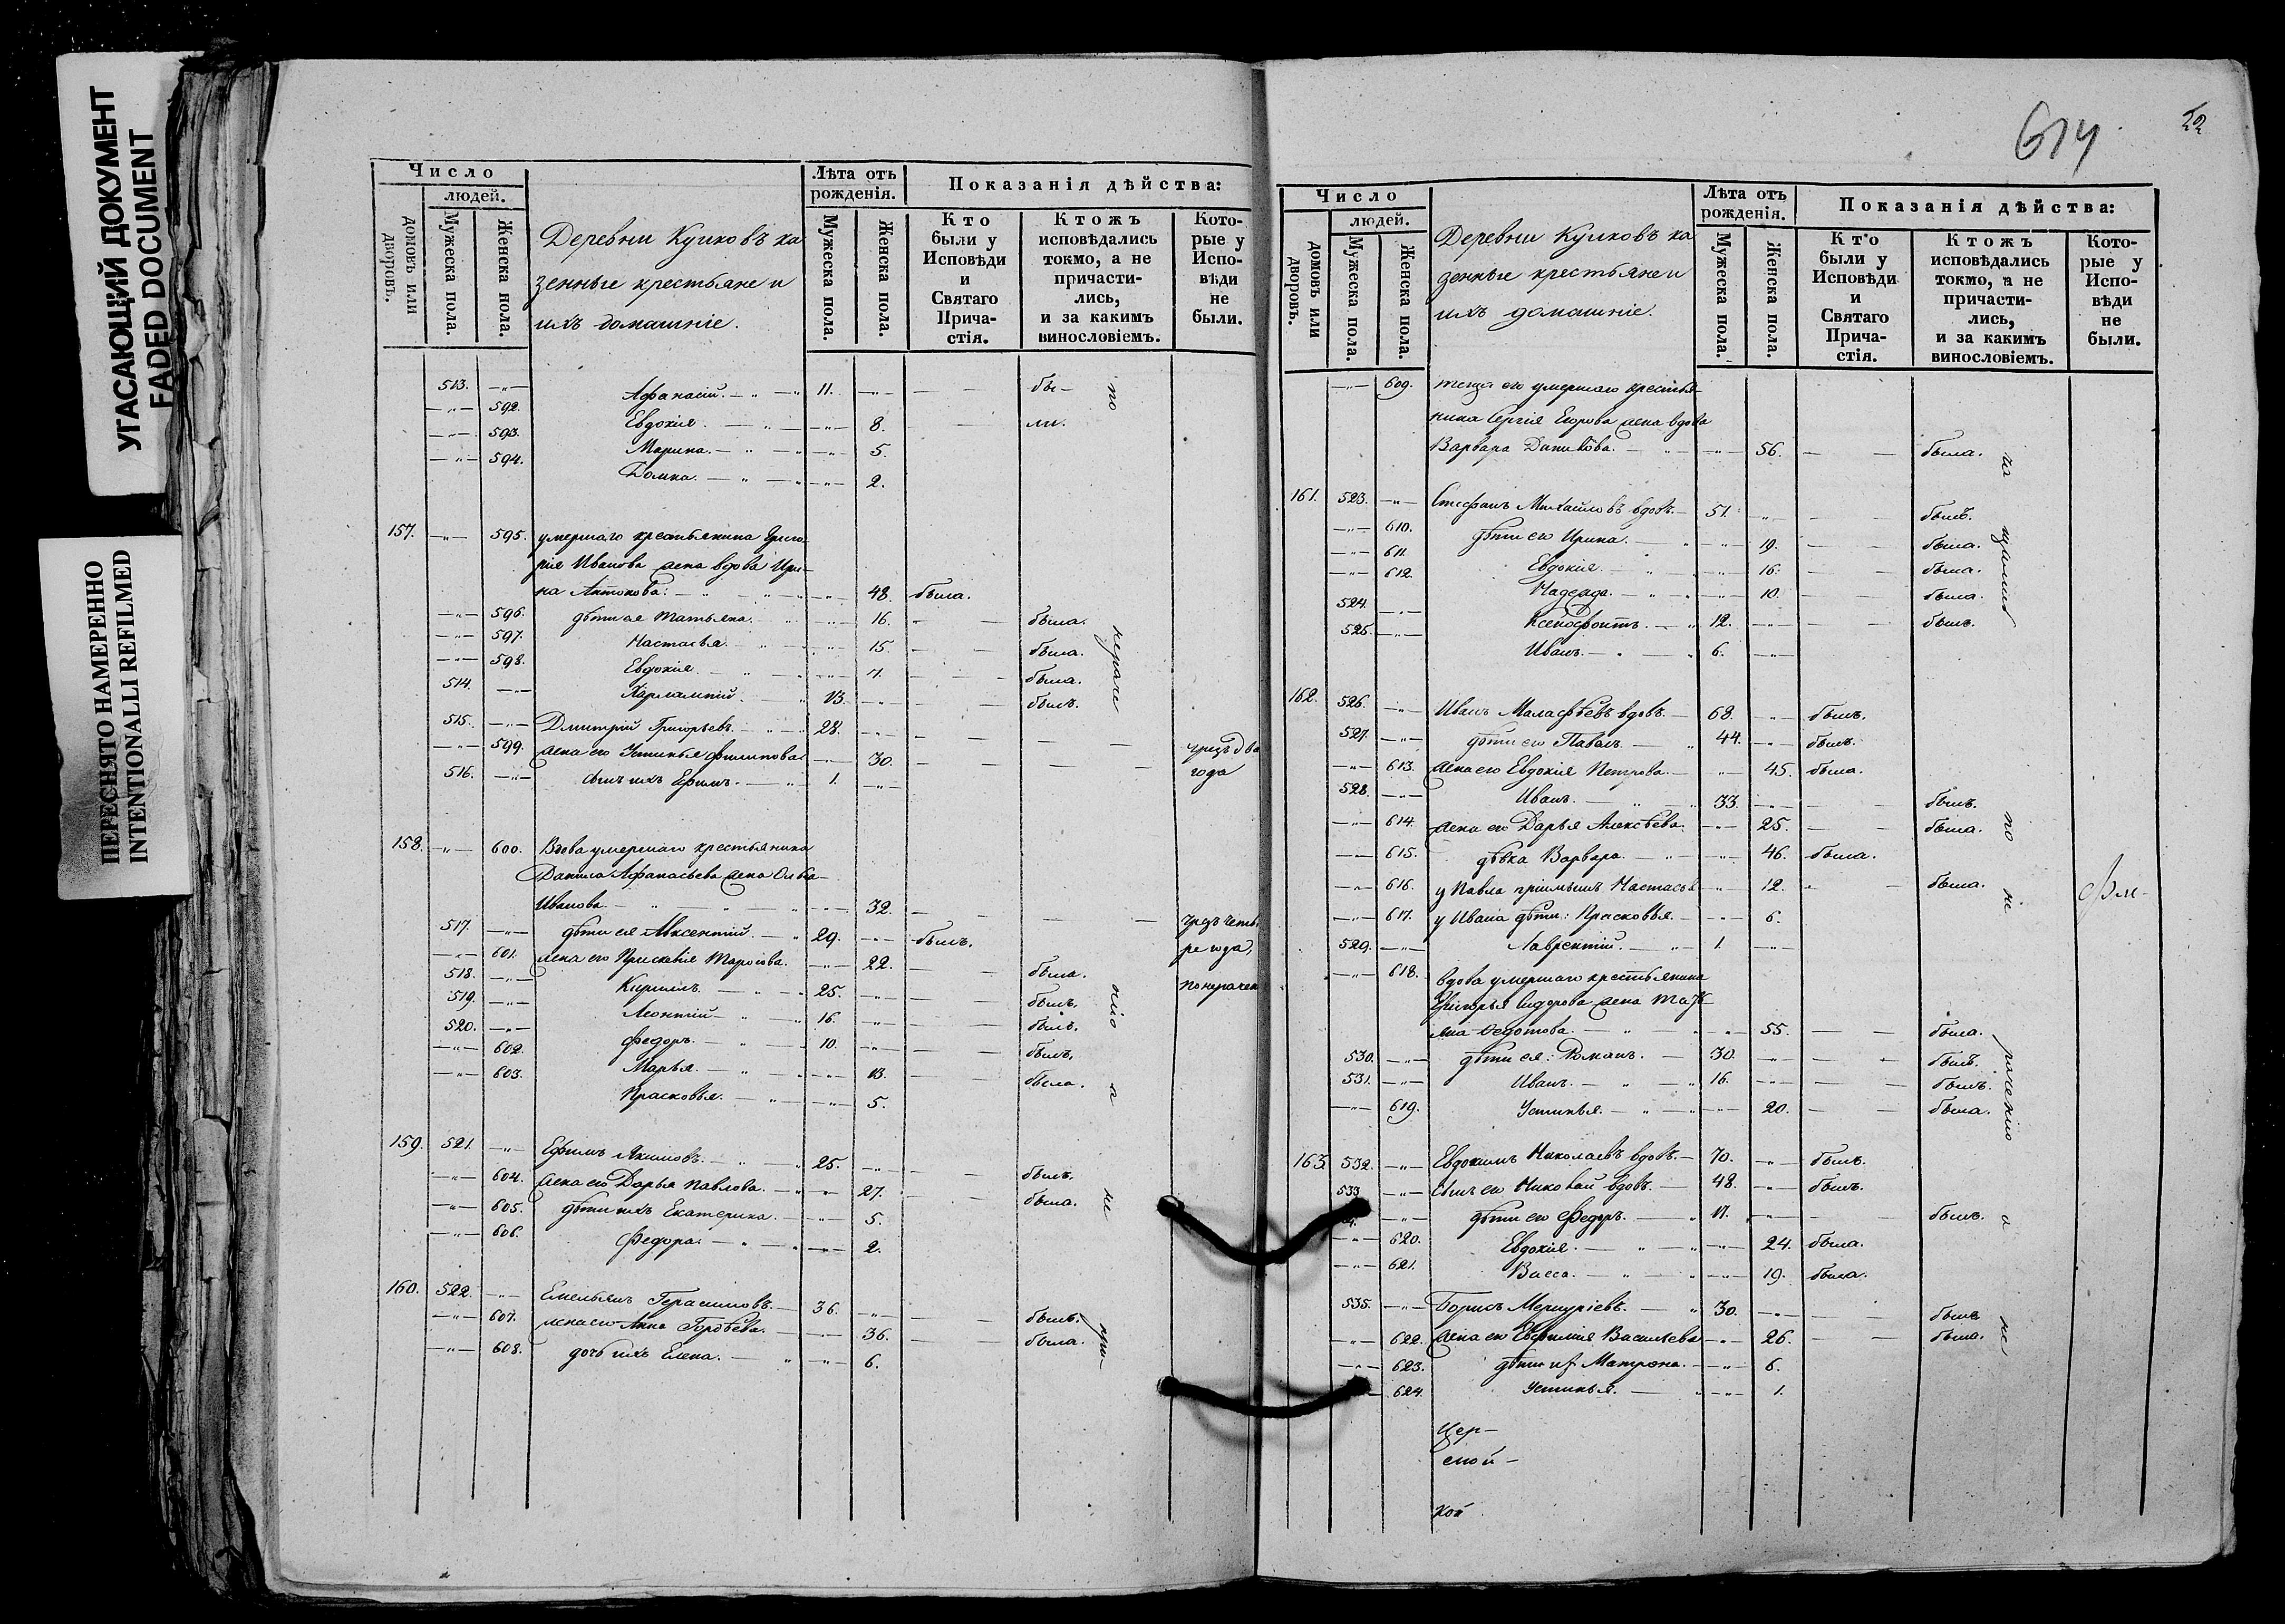 УГАСАЮЩИЙ ДОКУМЕНТ
FADED DOCUMENT
ПЕРЕСНЯТО НАМЕРЕННО
INTENTIONALLI REFILMED
Число
людей.
домовъ или дворовъ.
Мужеска пола.
Женска пола.
Деревни Куиковъ ка
зенные крестьяне и
ихъ домашніе.
Лѣта отъ рожденія.
Мужеска пола.
Женска пола.
Показанія дѣйства:
Кто были у Исповѣди и Святаго Прича-стія.
Ктожъ исповѣдались токмо, а не причасти-лись, и за какимъ винословіемъ.
Кото-рые у Испо-вѣди не были.
513. —„— Афанасій. 11. —„— бы- по
—„— 592. Евдокія. —„— 8. ли.
—„— 593. Марина. —„— 5.
—„— 594. Домна. —„— 2.
157. —„— 595. умершаго крестьянина Григо-
рія Иванова жена вдова Ири-
на Антонова: —„— 48. была.
—„— 596. дѣти ея Татьяна. —„— 16. была.
—„— 597. Настасья. —„— 15. была. нераче
—„— 598. Евдокія. —„— 11. была.
514. —„— Харлампій. 13. —„— былъ.
515. —„— Дмитрій Григорьевъ. 28. —„—
—„— 599. жена его Устинья Филипова —„— 30. чрезъ два
516. —„— сынъ ихъ Ефимъ. 1. —„— года
158. —„— 600. Вдова умершаго крестьянина
Данила Афанасьева жена
Иванова. —„— 32.
517. —„— дѣти ея Авксентій. 29. —„— былъ. чрезъ четы
ре года,
—„— 601. жена его Прискавія Тарасова. —„— 22. была.
518. —„— Кирилъ. 25. —„— былъ. понерачен
519. —„— Леонтій 16. —„— былъ. нію
520. —„— Федоръ. 10. —„— былъ.
—„— 602. Марья. —„— 13. была. а
—„— 603. Прасковья. —„— 5.
159. 521. —„— Ефимъ Якимовъ. 25. —„— былъ.
—„— 604. жена его Дарья Павлова. —„— 27. была. не
—„— 605. дѣти ихъ Екатерина. —„— 5.
—„— 606. Федора. —„— 2.
160. 522. —„— Емельянъ Герасимовъ. 36. —„— былъ.
—„— 607. жена его Анна Гордѣева. —„— 36. была. при-
—„— 608. дочь ихъ Елена. —„— 6.
614
22
Число
людей.
домовъ или дворовъ.
Мужеска пола.
Женска пола.
Деревни Куиковъ ка
зенные крестьяне и
ихъ домашніе.
Лѣта отъ рожденія.
Мужеска пола.
Женска пола.
Показанія дѣйства:
Кто были у Исповѣди и Святаго Прича-стія.
Ктожъ исповѣдались токмо, а не причасти-лись, и за какимъ винословіемъ.
Кото-рые у Испо-вѣди не были.
—„— 609. теща его умершаго крестья-
нина Сергія Егорова жена вдова
Варвара Данилова. —„— 56. была. ча
161. 523. —„— Стефанъ Михайловъ вдовъ. 51. —„— былъ.
—„— 610. дѣти его Ирина. —„— 19. была.
—„— 611. Евдокія. —„— 16. была.
—„— 612. Надежда. —„— 10. была.
524. —„— Ксенофонтъ. 12. —„— былъ.
525. —„— Иванъ. 6. —„—
162. 526. —„— Иванъ Малафѣевъ вдовъ. 68. —„— былъ.
527. —„— дѣти его Павелъ. 44. —„— былъ.
—„— 613. жена его Евдокія Петрова. —„— 45. была.
528. —„— Иванъ. 33. —„— былъ.
—„— 614. жена его Дарья Алексѣева. —„— 25. была. по
—„— 615. дѣвка Варвара. —„— 46. была.
—„— 616. у Павла пріимышъ Настасья —„— 12. была. не
—„— 617. у Ивана дѣти: Прасковья. —„— 6.
529. —„— Лаврентій. 1. —„—
—„— 618. вдова умершаго крестьянина
Григорья Сидорова жена Татья-
на Федотова. —„— 55. была.
530. —„— дѣти ея: Романъ. 30. —„— былъ. раченію
531. —„— Иванъ. 16. —„— былъ.
—„— 619. Устинья. —„— 20. была.
163. 532. —„— Евдокимъ Николаевъ вдовъ. 70. —„— былъ.
533. —„— сынъ его Николай вдовъ. 48. —„— былъ.
—„— дѣти его Федоръ. 17. —„— былъ. а
—„— 620. Евдокія. —„— 24. была.
—„— 621. Васса. —„— 19. была.
535. —„— Борисъ Меркуріевъ. 30. —„— былъ не
—„— 622. жена его Евфимія Васильева —„— 26. была.
—„— 623. дѣти их Матрона. —„— 6.
624. Устинья. —„— 1.
Цер-
кой